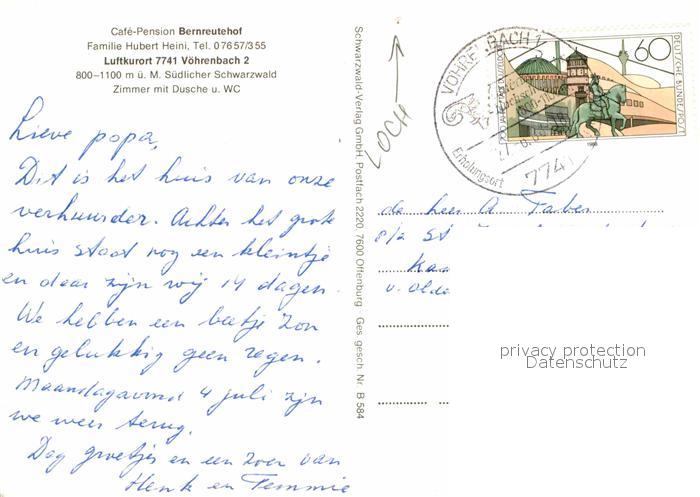 Café-Pension Bernreutehof
Familie Hubert Heini, Tel. 07657/355
Luftkurort 7741 Vöhrenbach 2
800–1100 m ü. M. Südlicher Schwarzwald
Zimmer mit Dusche u. WC
Lieve popa,
Dit is het huis van onze
verhuurder. Achter het grote
huis staat nog een kleintje
en daar zijn wij 14 dagen.
We hebben een beetje zon
en gelukkig geen regen.
Maandagavond 4 juli zijn
we weer terug.
Dag groetjes en een zoen van
Henk en Temmie
Schwarzwald-Verlag GmbH, Postfach 2220, 7600 Offenburg Ges. gesch. Nr. B 584
LOCH
VÖHRENBACH 1
Erholungsort
7741
60
DEUTSCHE BUNDESPOST
1988
de heer A Taber
8/2 St
Kaa
v. Olde
privacy protection
Datenschutz